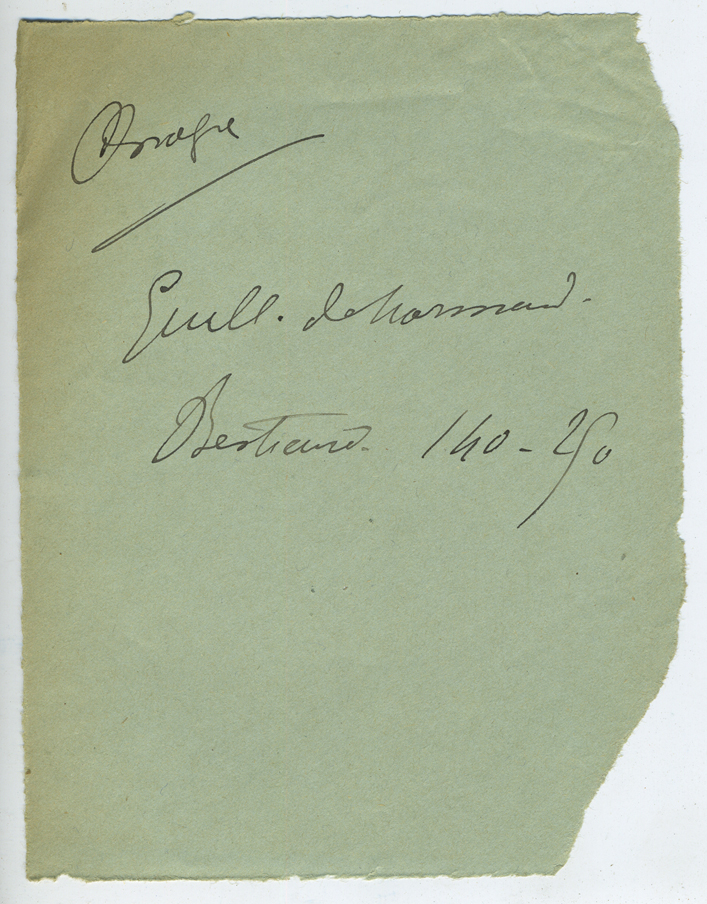 Guill. de Normand.
Bertrand. 140-250